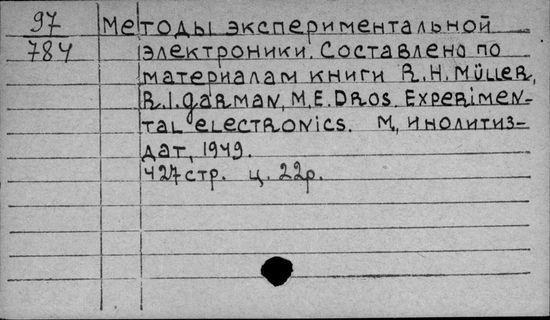 97
784
Методы экспериментальной
электроники. Составлено по
материалам книги R.H. Müller,
R.I. Garman, M.E. Dros. Experimen-
tal electronics. М, инолитиз-
дат, 1949.
427 стр. ц. 22р.